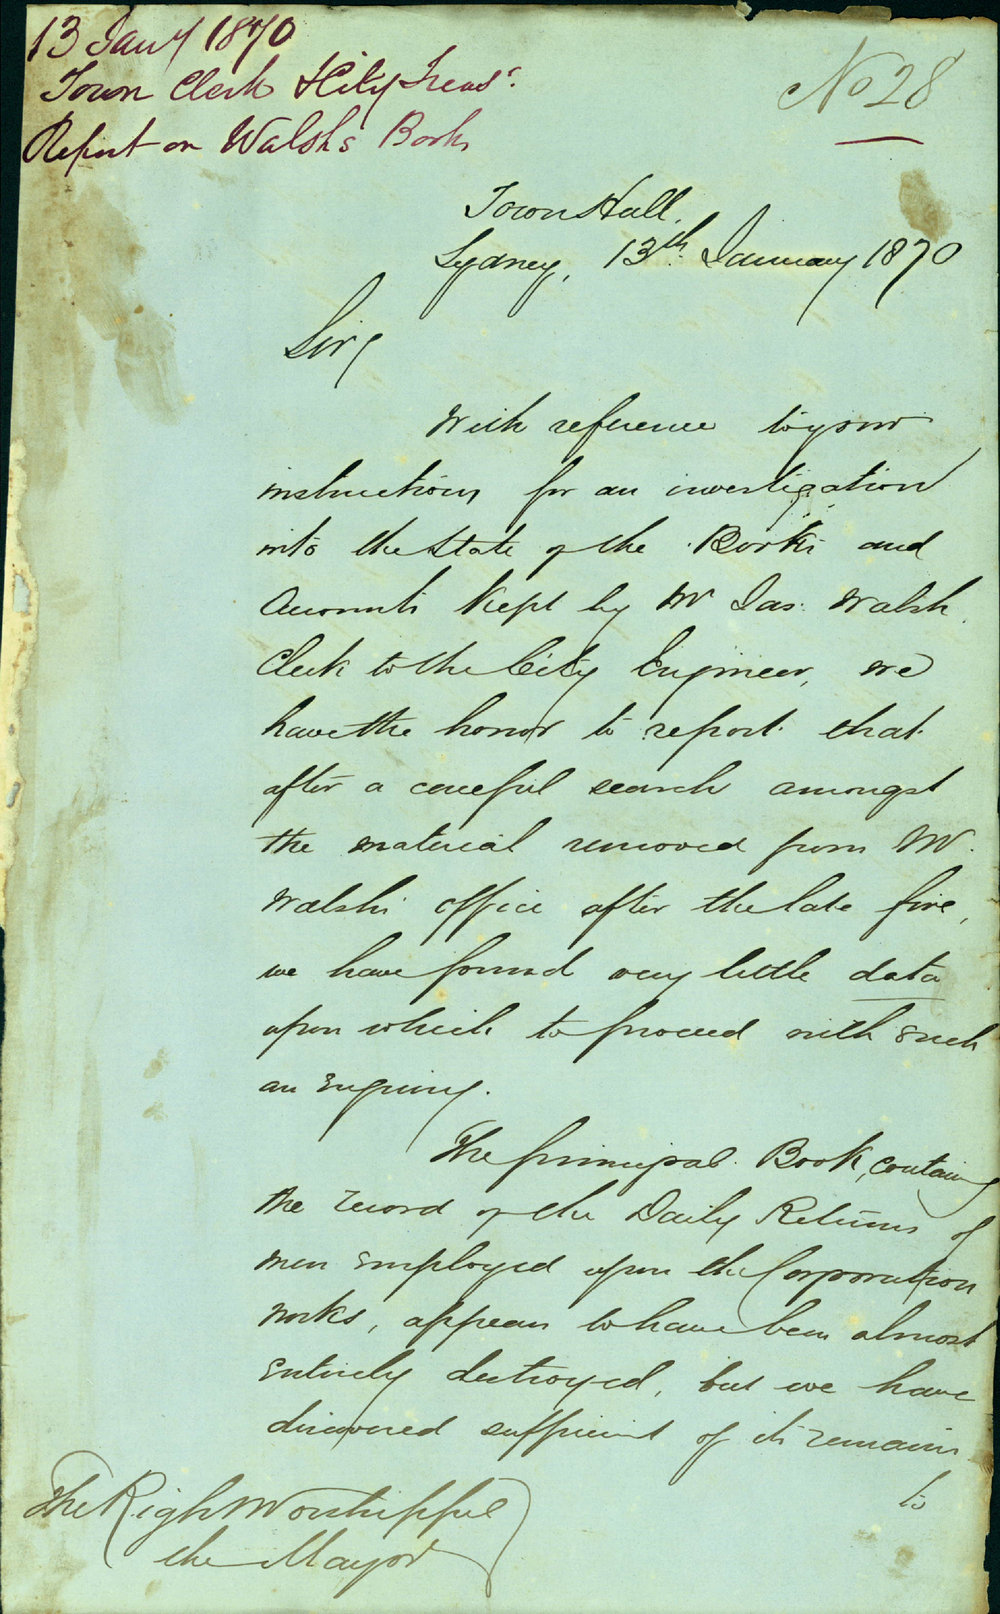 13 Jany 1870
Town Clerk & City Treasr
Report on Walsh's Books
No 28
Town Hall,
Sydney, 13th January 1870
Sir,
With reference to your
instructions for an investigation
into the State of the Books and
Accounts kept by Mr Jas. Walsh,
Clerk to the City Engineer, we
have the honor to report that
after a careful search amongst
the material removed from Mr.
Walsh's office after the late fire,
we have found very little data
upon which to proceed with such
an enquiry.
The principal Book, containing
the record of the Daily Returns of
men employed upon the Corporation
works, appears to have been almost
entirely destroyed, but we have
discovered sufficient of its remains
to
The Right Worshipful
the Mayor